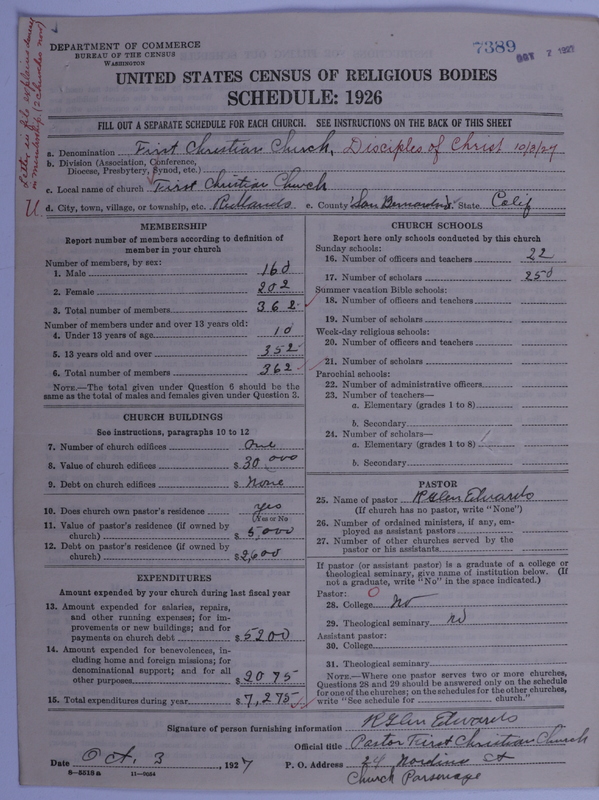 Letter in file explains
in membership (2 churches now)
DEPARTMENT OF COMMERCE
BUREAU OF THE CENSUS
WASHINGTON
7389
7 1927
UNITED STATES CENSUS OF RELIGIOUS BODIES
SCHEDULE: 1926
FILL OUT A SEPARATE SCHEDULE FOR EACH CHURCH. SEE INSTRUCTIONS ON THE BACK OF THIS SHEET
a. Denomination First Christian Church, Disciples of Christ 10/8/27
b. Division (Association, Conference,
Diocese, Presbytery, Synod, etc.)
c. Local name of church First Christian Church
U d. City, town, village, or township, etc. Redlands e. County San Bernardino f. State Calif
MEMBERSHIP
Report number of members according to definition of
member in your church
Number of members, by sex:
1. Male 160
2. Female 202
3. Total number of members 362
Number of members under and over 13 years old:
4. Under 13 years of age 10
5. 13 years old and over 352
6. Total number of members 362
NOTE.—The total given under Question 6 should be the
same as the total of males and females given under Question 3.
CHURCH BUILDINGS
See instructions, paragraphs 10 to 12
7. Number of church edifices One
8. Value of church edifices $ 30 000
9. Debt on church edifices $ None
10. Does church own pastor's residence yes
(Yes or No)
11. Value of pastor's residence (if owned by
church) $ 5000
12. Debt on pastor's residence (if owned by
church) $2,600
EXPENDITURES
Amount expended by your church during last fiscal year
13. Amount expended for salaries, repairs,
and other running expenses; for im-
provements or new buildings; and for
payments on church debt $ 5200
14. Amount expended for benevolences, in-
cluding home and foreign missions; for
denominational support; and for all
other purposes $ 2075
15. Total expenditures during year $ 7,275
CHURCH SCHOOLS
Report here only schools conducted by this church
Sunday schools:
16. Number of officers and teachers 22
17. Number of scholars 250
Summer vacation Bible schools:
18. Number of officers and teachers
19. Number of scholars
Week-day religious schools:
20. Number of officers and teachers
21. Number of scholars
Parochial schools:
22. Number of administrative officers
23. Number of teachers—
a. Elementary (grades 1 to 8)
b. Secondary
24. Number of scholars—
a. Elementary (grades 1 to 8)
b. Secondary
PASTOR
25. Name of pastor R Glen Edwards
(If church has no pastor, write "None")
26. Number of ordained ministers, if any, em-
ployed as assistant pastors
27. Number of other churches served by the
pastor or his assistants
If pastor (or assistant pastor) is a graduate of a college or
theological seminary, give name of institution below. (If
not a graduate, write "No" in the space indicated.)
Pastor: O
28. College no
29. Theological seminary no
Assistant pastor:
30. College
31. Theological seminary
NOTE.—Where one pastor serves two or more churches,
Questions 28 and 29 should be answered only on the schedule
for one of the churches; on the schedules for the other churches,
write "See schedule for church."
Signature of person furnishing information R Glen Edwards
Official title Pastor First Christian Church
Date Oct. 3, 1927 P. O. Address 24 Nordina St
Church Parsonage
8—5518a 11—9654